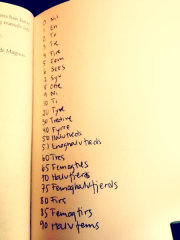 0 Nil
1 En
2 To
3 Tre
4 Fire
5 Fem
6 Seks
7 Syv
8 Otte
9 Ni
10 Ti
20 Tyve
30 Tredive
40 Fyrre
50 Halvtreds
51 Enoghalvtreds
60 Tres
65 Femogtres
70 Halvfjerds
75 Femoghalvfjerds
80 Firs
85 Femogfirs
90 Halvfems